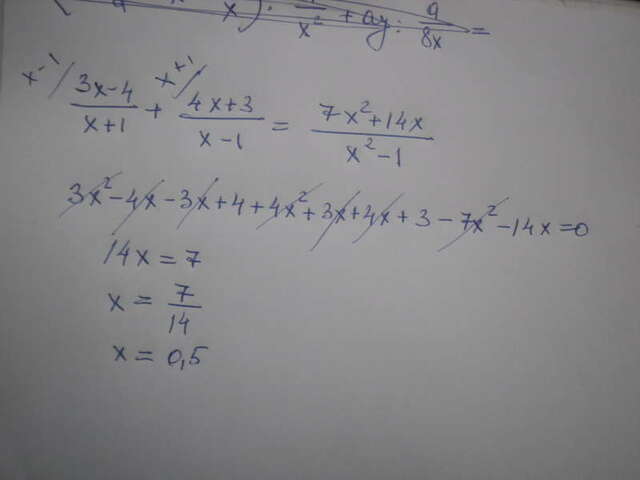 x) : /x² + ay : a/8x =
x-1/ (3x-4)/(x+1) + x+1/ (4x+3)/(x-1) = (7x²+14x)/(x²-1)
3x²-4x-3x+4+4x²+3x+4x+3-7x²-14x=0
14x=7
x=7/14
x=0,5